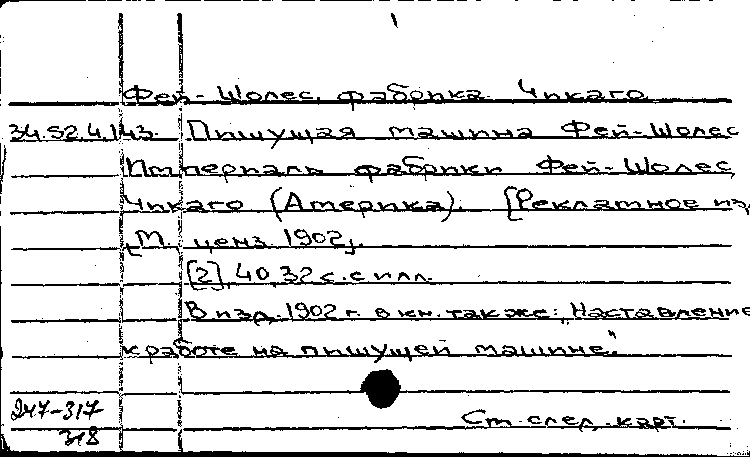 Фей-Шолес, фабрика. Чикаго
34.52.4.143. Пишущая машина Фей-Шолес
Империаль фабрики Фей-Шолес,
Чикаго (Америка). [Рекламное из
[М. ценз. 1902].
[2], 40, 32 с. с илл.
В изд. 1902 г. в кн. также: „Наставление
к работе на пишущей машине."
247-317
318
См. след. карт.